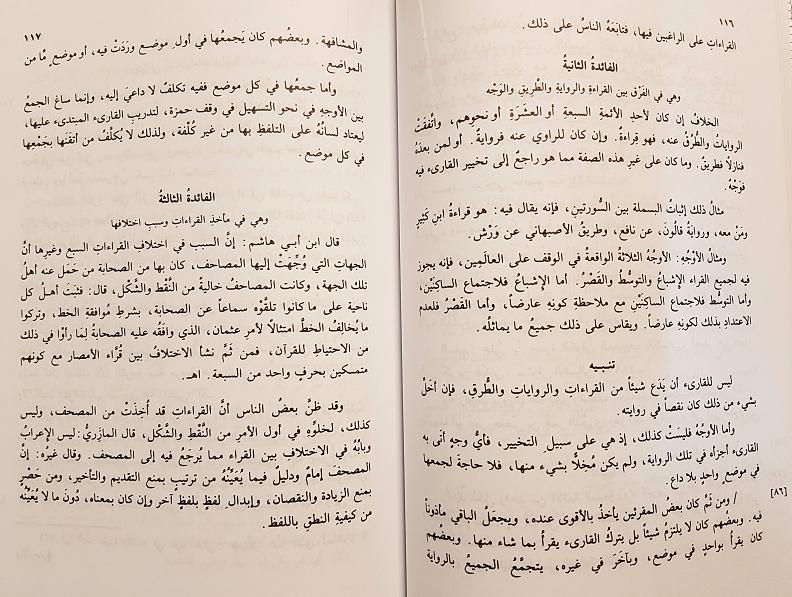 ١١٦
القراءاتِ على الراغبين فيها، فتابَعَهُ الناسُ على ذلك.
الفائدةُ الثانيةُ
وهي في الفَرْق بين القراءةِ والروايةِ والطَّريقِ والوَجْه
الخلافُ إن كان لأحدِ الأئمةِ السبعةِ أو العشَرَةِ أو نحوِهم، واتَّفقَتْ
الرواياتُ والطُّرُقُ عنه، فهو قِراءةٌ. وإن كان للراوي عنه فروايةٌ. أو لمن بعدَهُ
فنازلاً فطريقٌ. وما كان على غيرِ هذه الصفة مما هو راجعٌ إلى تخيير القارىء فيه
فوَجْهٌ.
مثالُ ذلك إثباتُ البسملة بين السُّورتين، فإنه يقال فيه: هو قراءةُ ابنِ كَثيرٍ
ومَنْ معه، وروايةُ قالُونَ، عن نافع، وطريقُ الأصبهاني عن وَرْش.
ومثالُ الأَوْجُه: الأوجُهُ الثلاثةُ الواقعةُ في الوقف على العالَمِين، فإنه يجوز
فيه لجميع القراء الإِشباعُ والتوسُّطُ والقَصْرُ. أما الإِشباعُ فلاجتماع الساكِنَيْن،
وأما التوسُّط فلاجتماع الساكِنَيْنِ مع ملاحظةِ كونِهِ عارضاً، وأما القَصْرُ فلعدم
الاعتدادِ بذلك لكونِهِ عارضاً. ويقاس على ذلك جميعُ ما يماثلُه.
تنبيه
ليس للقارىء أن يَدَع شيئاً من القراءاتِ والرواياتِ والطُّرقِ، فإن أخَلَّ
بشيء من ذلك كان نقصاً في روايته.
وأما الأوجُهُ فليسَتْ كذلك، إذ هي على سبيلِ التخيير، فأيُّ وجهٍ أتى به
القارىءُ أجزأه في تلك الرواية، ولم يكن مُخِلاًّ بشيء منها، فلا حاجةَ لجمعها
في موضعٍ واحدٍ بلا داعٍ.
[٨٦] / ومن ثَمَّ كان بعضُ المقرئين يأخذُ بالأقوى عنده، ويجعلُ الباقي مأذوناً
فيه. وبعضُهم كان لا يلتزمُ شيئاً بل يتركُ القارىء يقرأُ بما شاء منها. وبعضُهم
كان يقرأُ بواحدٍ في موضع، وبآخَرَ في غيره، يتجمَّعُ الجميعُ بالرواية
١١٧
والمشافهة. وبعضُهم كان يَجمعُها في أولِ موضع ورَدَتْ فيه، أو موضعٍ مَّا من
المواضع.
وأما جمعُها في كل موضع ففيه تكلفٌ لا داعيَ إليه، وإنما ساغ الجمعُ
بين الأوجهِ في نحو التسهيل في وقف حمزة، لتدريبِ القارىء المبتدىء عليها،
ليعتاد لسانُهُ على التلفظِ بها من غير كُلْفة، ولذلك لا يُكلَّفُ من أتقنَها بجَمْعِها
في كل موضع.
الفائدةُ الثالثةُ
وهي في مأخذِ القراءاتِ وسببِ اختلافها
قال ابن أبي هاشم: إنَّ السببَ في اختلافِ القراءاتِ السبع وغيرِها أنَّ
الجهاتِ التي وُجِّهَتْ إليها المصاحف، كان بها من الصحابة من حَمَل عنه أهلُ
تلك الجهة، وكانت المصاحفُ خاليةً من النَّقْط والشَّكْل، قال: فثبَتَ أهلُ كل
ناحية على ما كانوا تلقَّوْه سماعاً عن الصحابة، بشرطِ مُوافقةِ الخط، وتركوا
ما يُخالِفُ الخطَّ امتثالاً لأمرِ عثمان، الذي وافَقَه عليه الصحابةُ لِمَا رأَوْا في ذلك
من الاحتياطِ للقرآن، فمن ثَمَّ نشأ الاختلافُ بين قُرَّاءِ الأمصار مع كونهم
متمسكين بحرفٍ واحد من السبعة. اهـ.
وقد ظنَّ بعضُ الناس أنَّ القراءاتِ قد أُخِذَتْ من المصحف، وليس
كذلك، لخلوِّهِ في أول الأمرِ من النَّقْطِ والشَّكْل، قال المازَرِيُّ: ليس الإِعرابُ
وبابُهُ في الاختلافِ بين القراء مما يُرجَعُ فيه إلى المصحف. وقال غيرُه: إنَّ
المصحفَ إمامٌ ودليلٌ فيما يُعَيِّنُهُ من ترتيبٍ بمنع التقديم والتأخير، ومن حَصْرٍ
بمنع الزيادة والنقصان، وإبدالِ لفظٍ بلفظٍ آخر وإن كان بمعناه، دُونَ ما لا يُعَيِّنُه
من كيفيةِ النطقِ باللفظ.